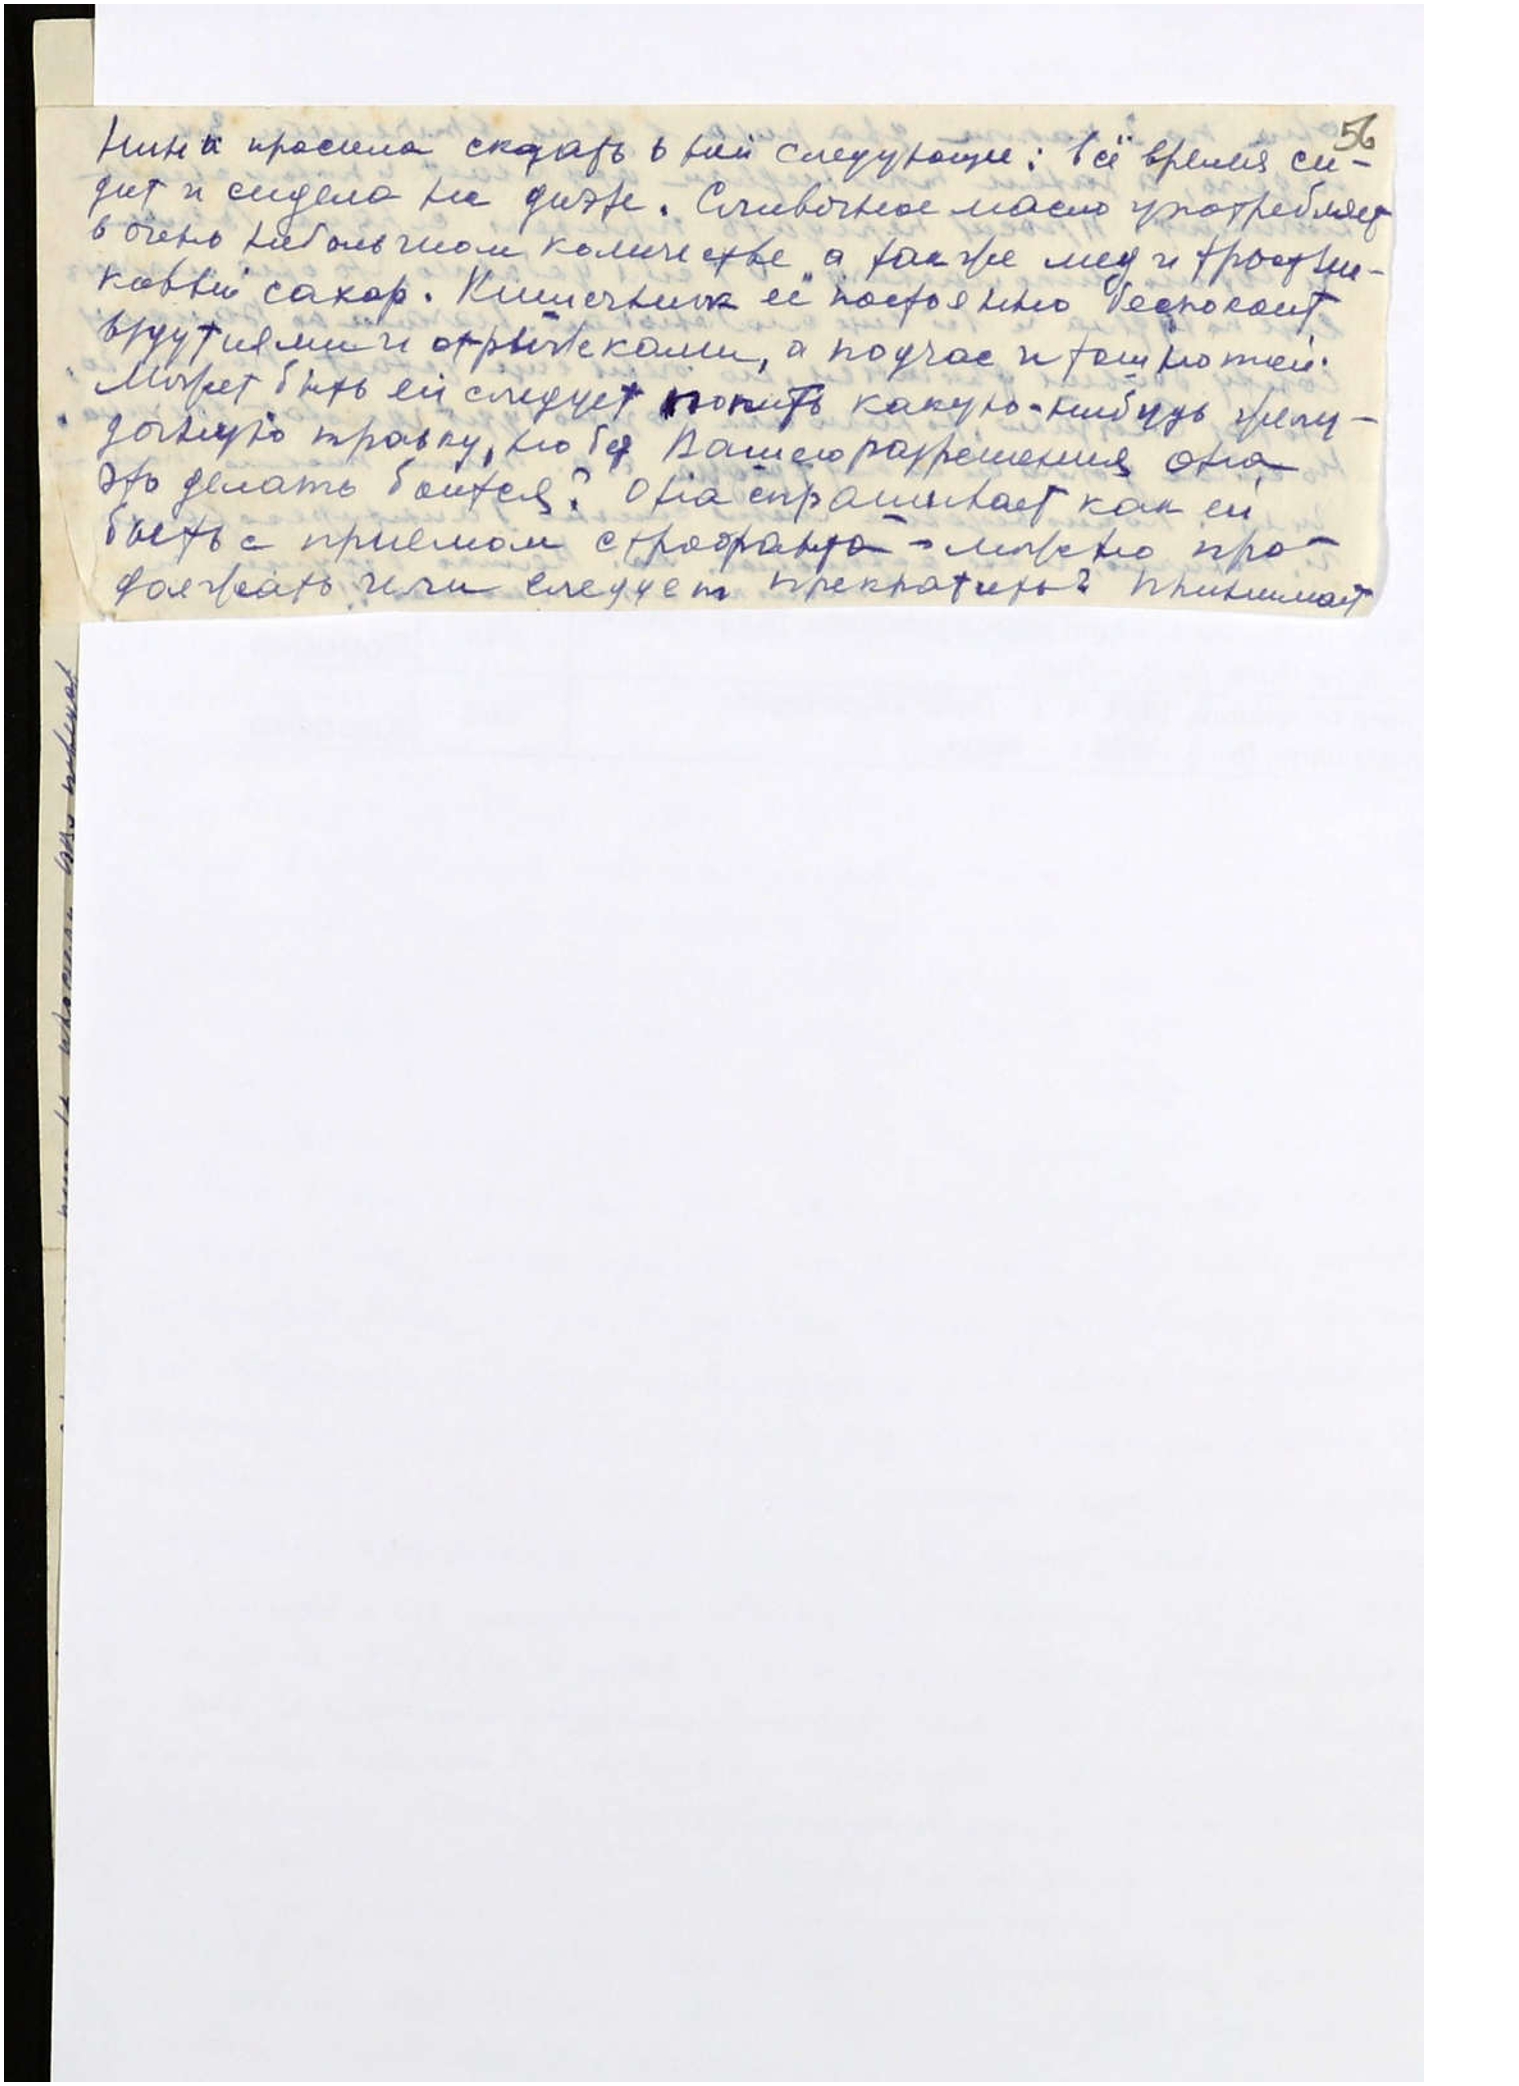 56
Нина просила сказать о ней следующее: всё время си-
дит и сидела на диэте. Сливочное масло употребляет
в очень небольшом количестве, а также мед и тростни-
ковый сахар. Кишечник её постоянно беспокоит
вздутиями и отрыжками, а подчас и тошнотой.
Может быть ей следует попить какую-нибудь желу-
дочную травку, но без Вашего разрешения она
это делать боится? Она спрашивает как ей
быть с приемом строфанта - можно про-
должать или следует прекратить? Принимает